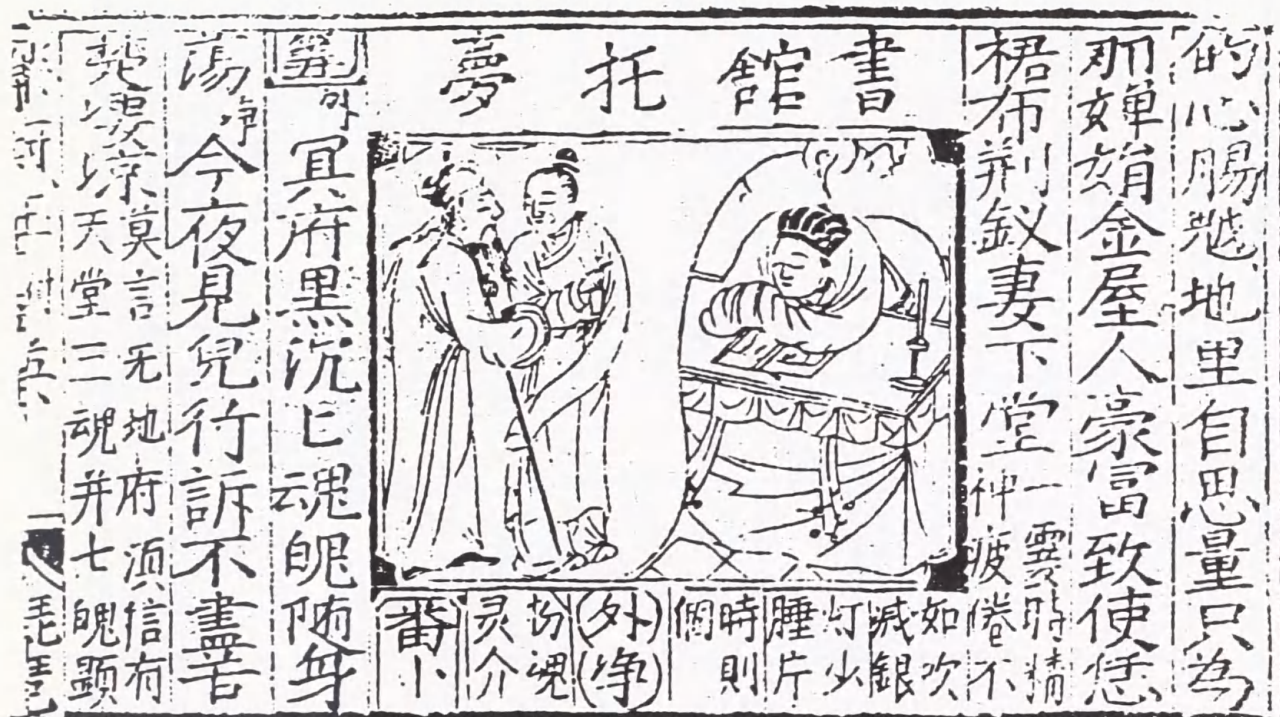 的心腸越地里自思量只為
那嬋娟金屋人豪富致使恁
裙布荆釵妻下堂
一霎時精
神疲倦不
書館托夢
如吹
滅銀
灯少
睡片
時則
個
(外)(净)
扮魂
灵介
番卜
外
冥府黑沉匕魂魄随身
荡
净
今夜見兒行訴不盡苦
凉
莫言无地府湏信有
天堂三魂并七魄顕
琵琶